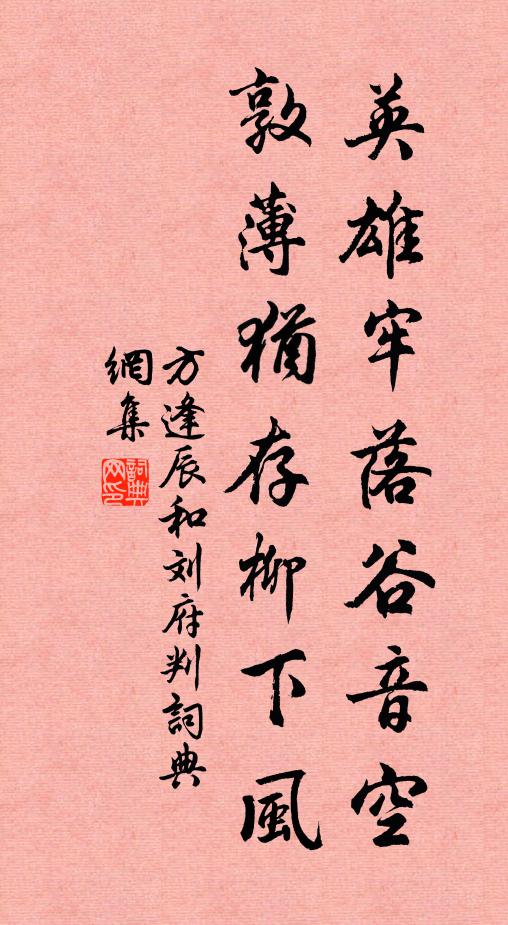 英雄牢落谷音空
敦薄猶存柳下風
方逢辰和刘府判詞典
網集
詞典网印